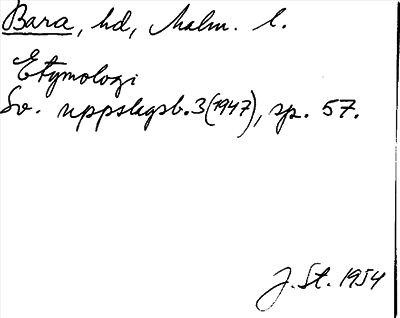 Bara, hd, Malm. l.
Etymologi
Sv. uppslagsb. 3 (1947), sp. 57.
J. St. 1954